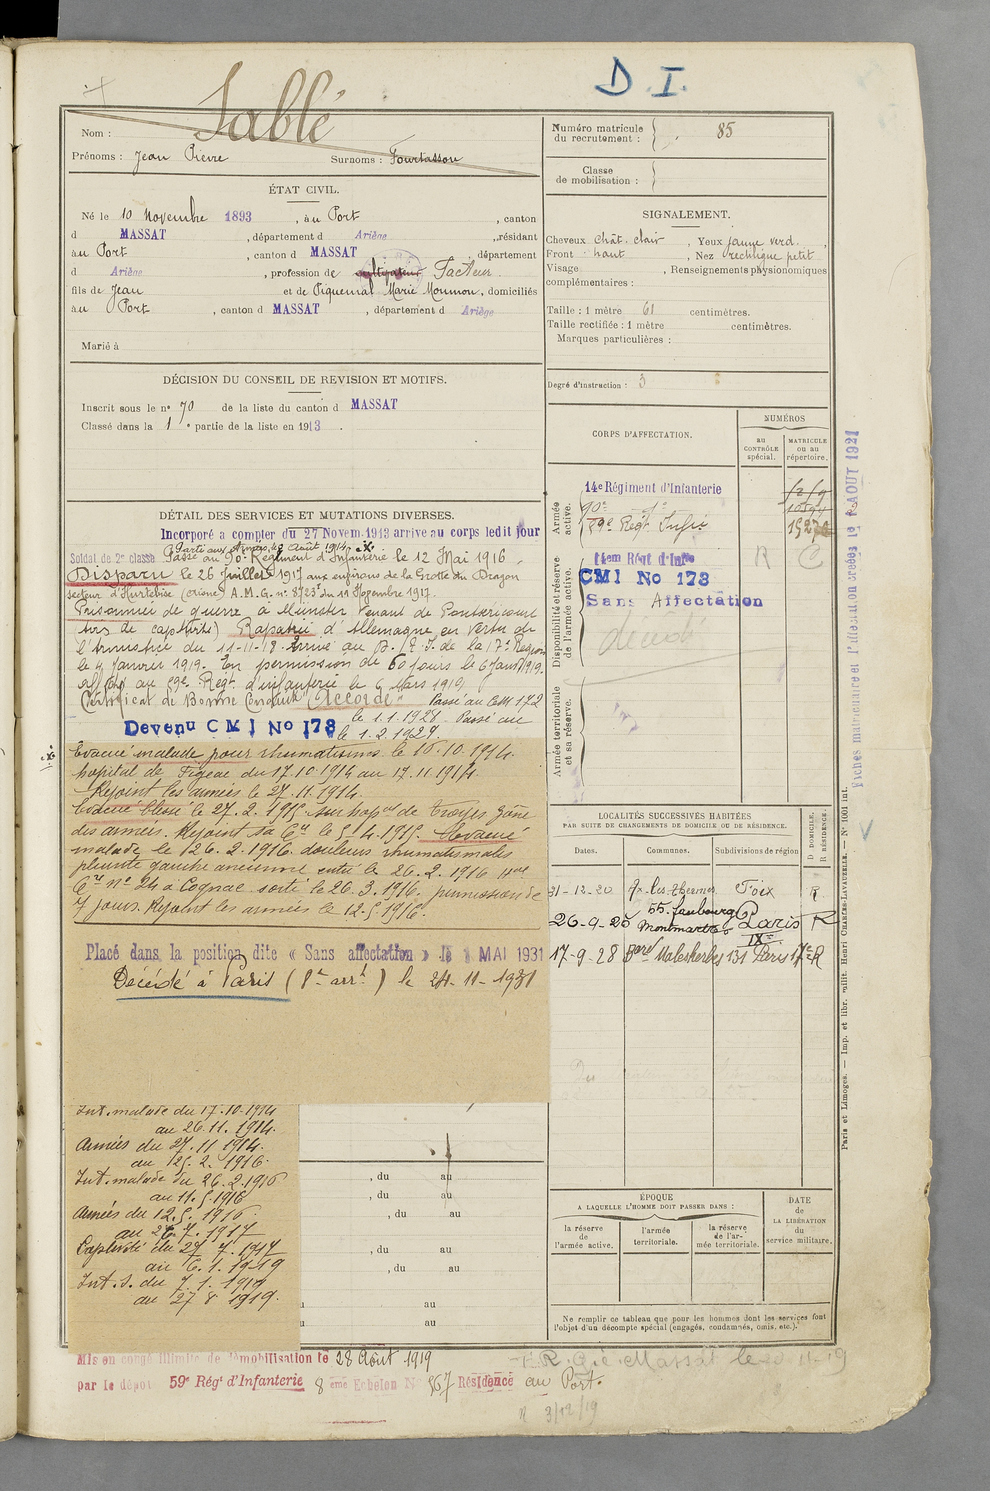 D. I.
Sablé
Nom :
Prénoms : Jean Pierre Surnoms : Fourtassou
ÉTAT CIVIL.
Né le 10 Novembre 1893, à au Port, canton
d MASSAT, département d Ariège, résidant
au Port, canton d MASSAT, département
d Ariège, profession de cultivateur Facteur
fils de Jean et de Piquemal Marie Mounou, domiciliés
au Port, canton d MASSAT, département d Ariège
Marié à
DÉCISION DU CONSEIL DE REVISION ET MOTIFS.
Inscrit sous le n° 70 de la liste du canton d MASSAT
Classé dans la 1e partie de la liste en 1913.
DÉTAIL DES SERVICES ET MUTATIONS DIVERSES.
Incorporé à compter du 27 Novem. 1913 arrivé au corps ledit jour
Parti aux Armées le Août 1914
Soldat de 2e classe Passé au 90e Régiment d'Infanterie le 12 Mai 1916
Disparu le 26 Juillet 1917 aux environs de la Grotte du Dragon
secteur d'Hurtebise (Aisne) A.M.G. n° 8723 du 11 Septembre 1917.
Prisonnier de guerre à Münster venant de
lieu de captivité) Rapatrié d'Allemagne en vertu de
l'Armistice du 11-11-18. Arrivé au D. de la 17e Région
le 4 Janvier 1919. En permission de 60 jours le 6 Janv. 1919.
affecté au 59e Régt d'infanterie le 6 Mars 1919
Certificat de Bonne Conduite "Accordé" Passé au CMI 172
le 1.1.1928. Passé au
Devenu C M I No 178 le 1.2.1927.
Evacué malade pour rhumatisme le 16.10.1914.
hopital de Figeac du 17.10.1914 au 17.11.1914.
Rejoint les armées le 27.11.1914.
Evacué blessé le 27.2.1915 sur hopal de Troyes zone
des armées. Rejoint sa Cie le 5.4.1915. Evacué
malade le 126.2.1916. douleurs rhumatismales
pleurite gauche ancienne entré le 26.2.1916 Hal
Cre n° 24 à Cognac sorti le 26.3.1916. permission de
7 jours. Rejoint les armées le 12.5.1916.
Placé dans la position dite « Sans affectation » le 1 MAI 1931
Décédé à Paris (8e arrt) le 24-11-1931
Int. malade du 17.10.1914
au 26.11.1914.
Armées du 27.11.1914.
au 125.2.1916.
Int. malade du 26.2.1916
au 11.5.1916
Armées du 12.5.1916.
au 26.7.1917
Captivité du 27.7.1917
au 6.1.1919
Int. S. du 7.1.1919
au 27 8 1919.
, du au
, du au
, du au
, du au
, du au
au
au
Mis en congé illimité de démobilisation le 28 Août 1919
par le dépôt 59e Régt d'Infanterie 8 ème Echelon N° 567 Résidence au Port.
Numéro matricule
du recrutement : 85
Classe
de mobilisation :
SIGNALEMENT.
Cheveux chât. clair, Yeux jaune verd.,
Front haut, Nez rectiligne petit
Visage , Renseignements physionomiques
complémentaires :
Taille : 1 mètre 61 centimètres.
Taille rectifiée : 1 mètre centimètres.
Marques particulières :
Degré d'instruction : 3
CORPS D'AFFECTATION.
NUMÉROS
au
CONTRÔLE
spécial.
MATRICULE
ou au
répertoire.
Armée
active.
14e Régiment d'Infanterie
90e
59e Régt Infie
Disponibilité et réserve
de l'armée active.
14em Régt d'Infie
CMI No 178
Sans Affectation
R C
décédé
Armée territoriale
et sa réserve.
LOCALITÉS SUCCESSIVES HABITÉES
PAR SUITE DE CHANGEMENTS DE DOMICILE OU DE RÉSIDENCE.
Dates. Communes. Subdivisions de région
D DOMICILE.
R RÉSIDENCE.
31-12-20 Ax les Thermes Foix R
26-9-25 55. faubourg Montmartre Paris IXe R
17-9-28 Bard Malesherbes 131 Paris 17e R
ÉPOQUE
A LAQUELLE L'HOMME DOIT PASSER DANS :
la réserve
de l'armée active.
l'armée
territoriale.
la réserve
de l'ar-
mée territoriale.
DATE
de
LA LIBÉRATION
du
service militaire.
Ne remplir ce tableau que pour les hommes dont les services font
l'objet d'un décompte spécial (engagés, condamnés, omis, etc.).
Massat le
R 3/12/19
Fiches matriculaire et d'affectation créées le AOUT 1921
Paris et Limoges. — Imp. et libr. milit. Henri CHARLES-LAVAUZELLE. — N° 1001 int.